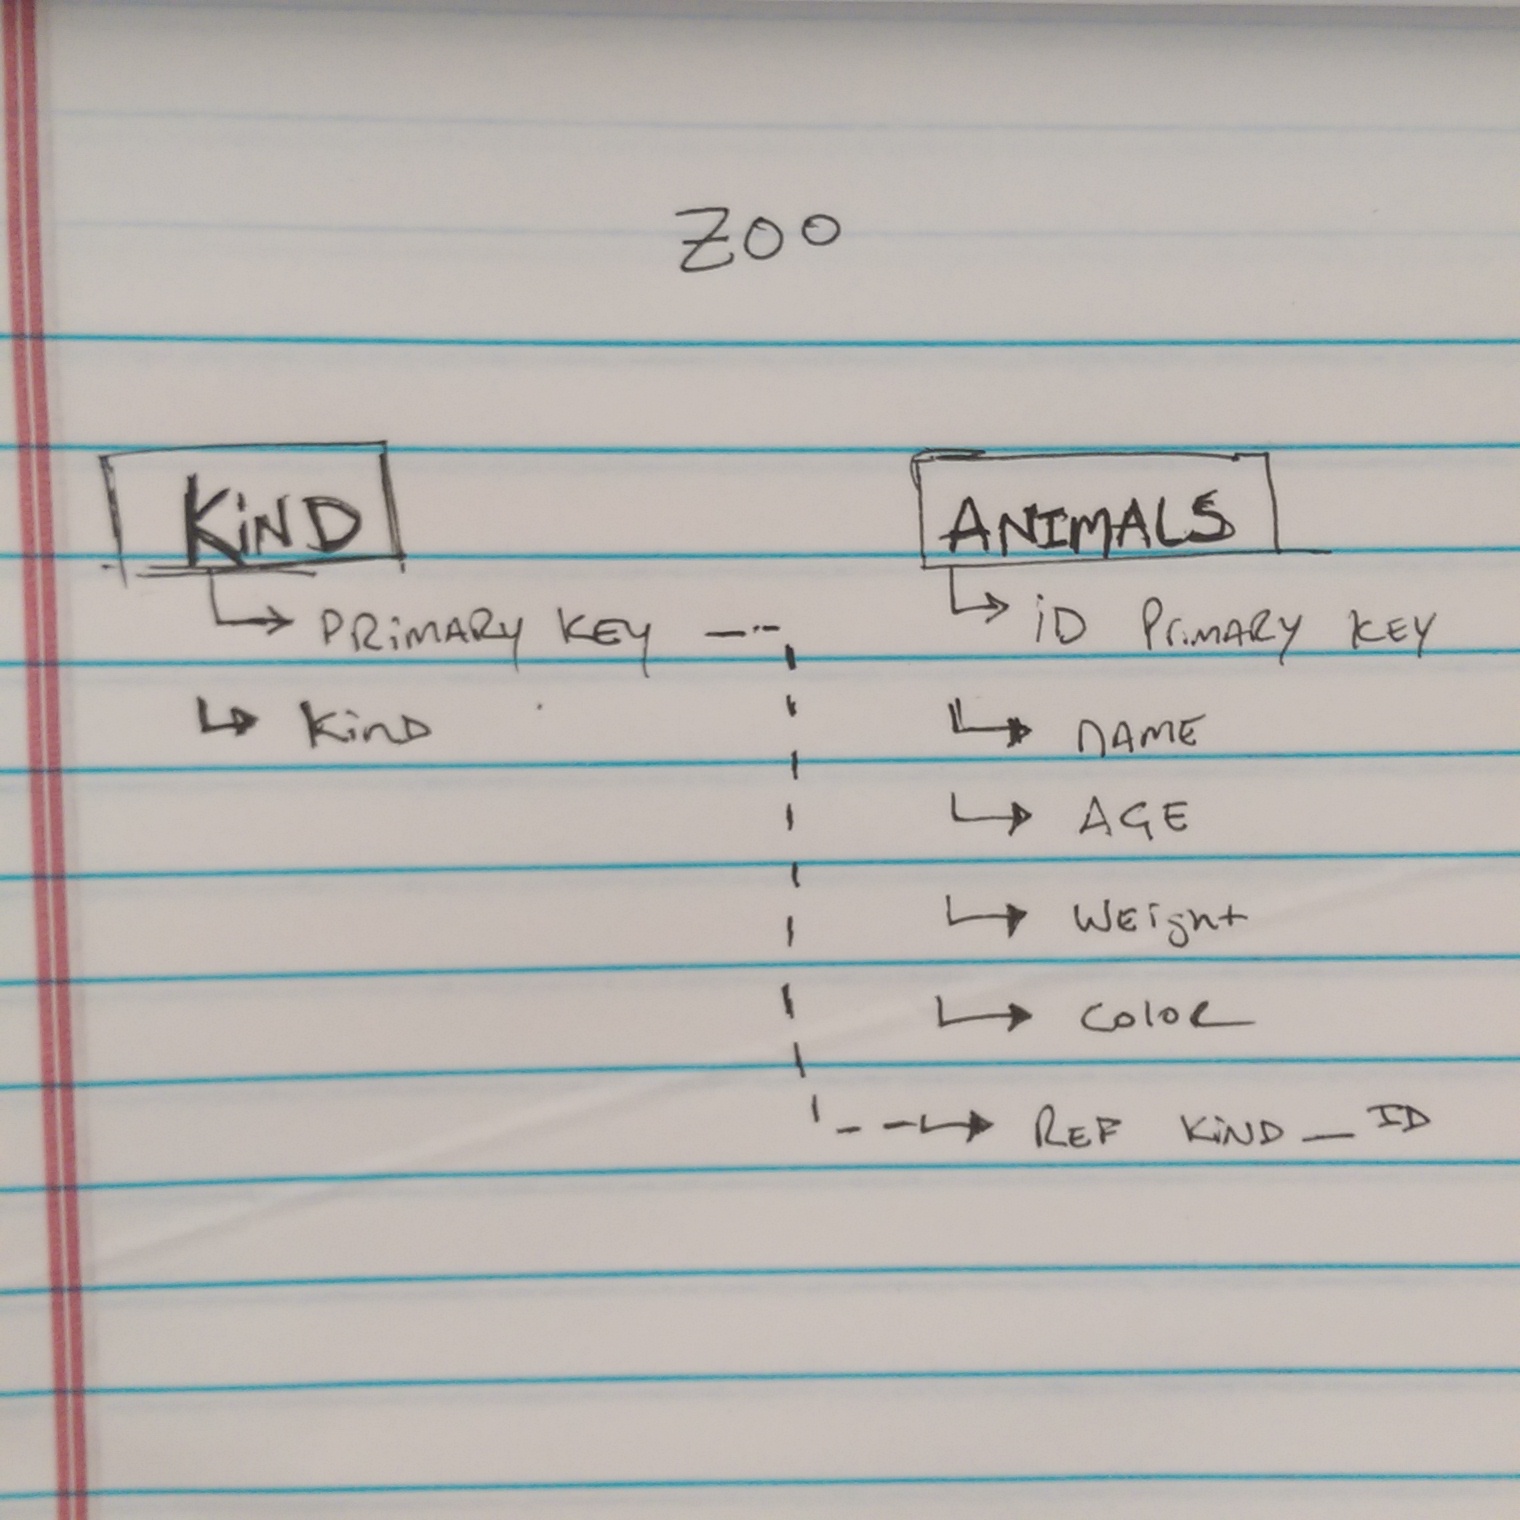 ZOO
KiND
PRiMARY KEY
KinD
ANIMALS
iD PriMARY KEY
NAME
AGE
WEight
Color
REF KiND_ID